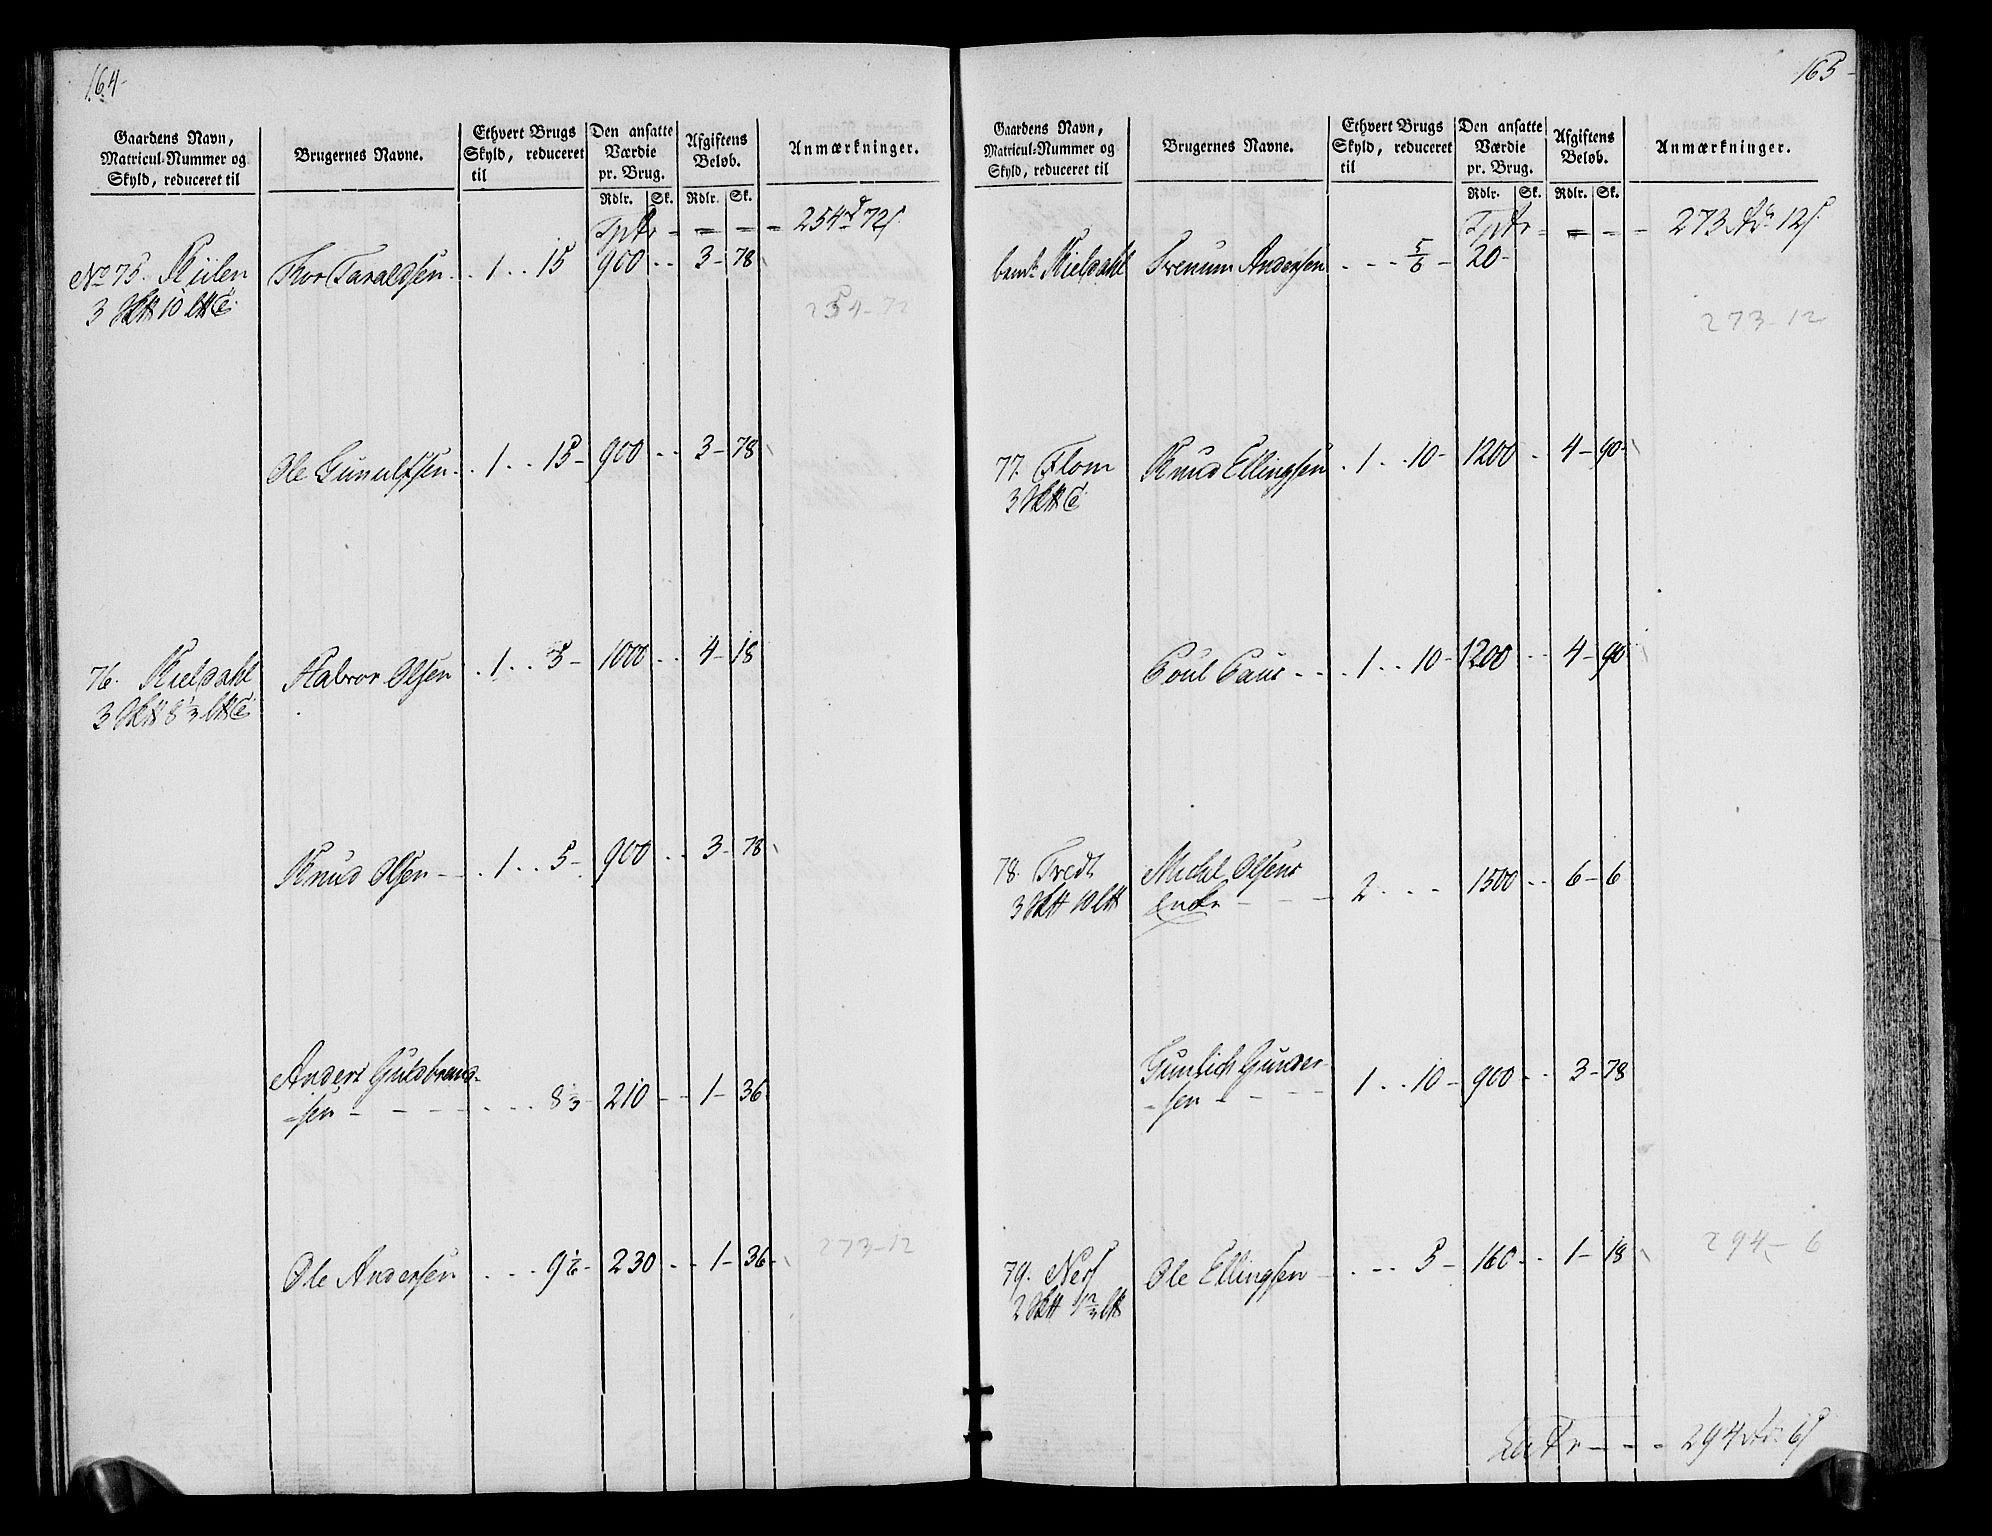 164-
Gaardens Navn, Matricul-Nummer og Skyld, reduceret til
Brugernes Navne.
Ethvert Brugs Skyld, reduceret til
Den ansatte Værdie pr. Brug.
Afgiftens Beløb.
Anmærkninger.
Rdlr. Sk. Rdlr. Sk.
Tptr - - - - 254 72
No 75. Kiilen Thor Taraldsen 1 .. 15 900 .. 3-78
3 10
254-72
Ole Gunulfsen 1 .. 15- 900 .. 3-78
76. Kieldahl Halvor Olsen 1 .. 5- 1000 .. 4-18
3 8 1/3
Knud Olsen 1 .. 5- 900 .. 3-78
Anders Guldbrand-
-sen - - - - 8 1/3- 210 - - 1-36
273-12
Ole Andersen - - - 9 1/6- 230 .. 1-36
165-
Gaardens Navn, Matricul-Nummer og Skyld, reduceret til
Brugernes Navne.
Ethvert Brugs Skyld, reduceret til
Den ansatte Værdie pr. Brug.
Afgiftens Beløb.
Anmærkninger.
Rdlr. Sk. Rdlr. Sk.
Tptr - - - - 273 12
Kieldahl Svenum Andersen - - - 5/6- 20-
273-12
77. Flom Knud Ellingsen 1 .. 10- 1200 .. 4-90
3
Poul Paus - - - 1 .. 10- 1200 .. 4-90
78. Tvedt Michl Olsens
3 10 Enke - - - 2 - - - 1500 .. 6-6
Gunlich Gunder-
-sen - - - 1 .. 10- 900 .. 3-78
294-6
79. Nes Ole Ellingsen - - - 5- 160 .. 1-18
2
Latr - - - 294 6